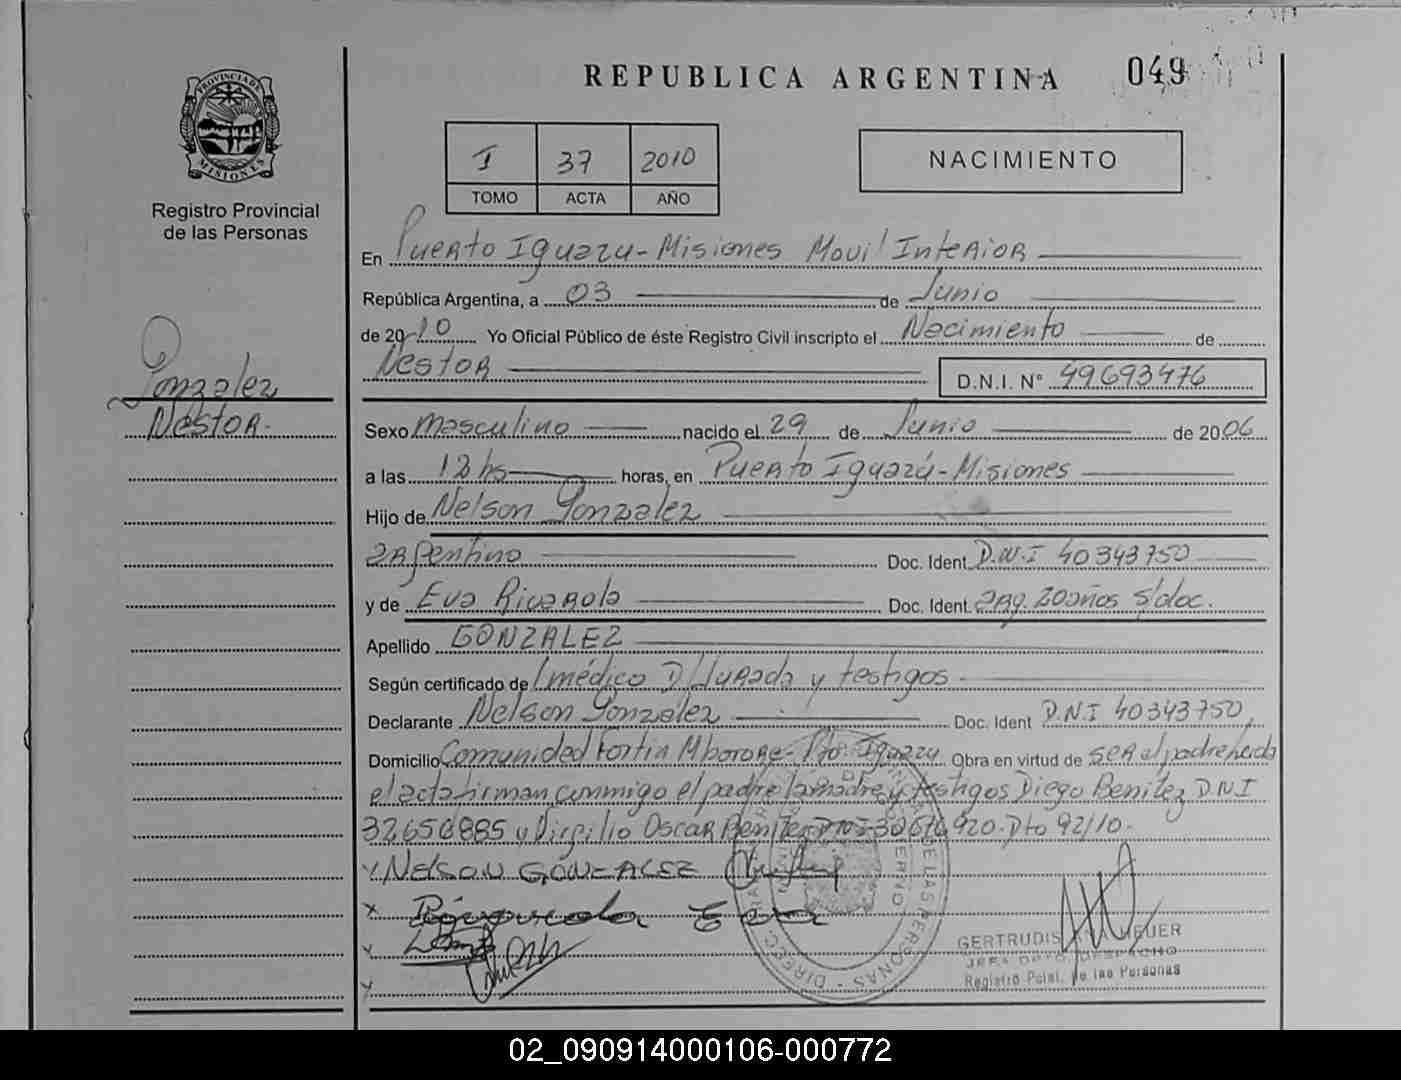 REPUBLICA ARGENTINA
049
PROVINCIA DE
MISIONES
Registro Provincial
de las Personas
I 37 2010
TOMO ACTA AÑO
NACIMIENTO
En Puerto Iguazu - Misiones Movil Interior
República Argentina, a 03 de Junio
de 2010 Yo Oficial Público de éste Registro Civil inscripto el Nacimiento de
Nestor D.N.I. N° 49693476
Gonzalez
Nestor.
Sexo masculino nacido el 29 de Junio de 2006
a las 12 hs horas, en Puerto Iguazú - Misiones
Hijo de Nelson Gonzalez
argentino Doc. Ident. D.N.I 40343750
y de Eva Rivarola Doc. Ident. arg. 20 años s/doc.
Apellido GONZALEZ
Según certificado de médico D/Jurada y testigos.
Declarante Nelson Gonzalez Doc. Ident D.N.I 40343750
Domicilio Comunidad Fortin Mborore - Pto Iguazu Obra en virtud de ser el padre
el acta firman conmigo el padre la madre y testigos Diego Benitez DNI
y Virgilio Oscar Benitez DNI 30676920. Dto 92/10.
NELSON GONZALEZ
Eva
GERTRUDIS
JEFA DPTO. DESPACHO
Registro Pcial. de las Personas
02_090914000106-000772